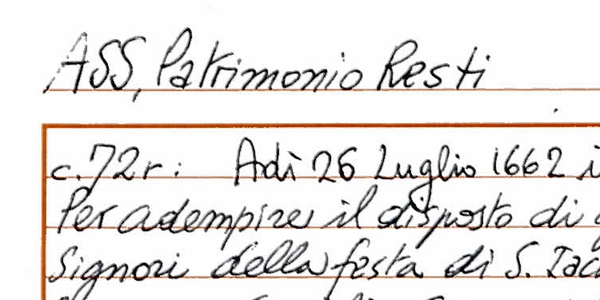 ASS, Patrimonio Resti
c. 72r: Adì 26 Luglio 1662
Per adempire il disposto di
Signori della festa di S.